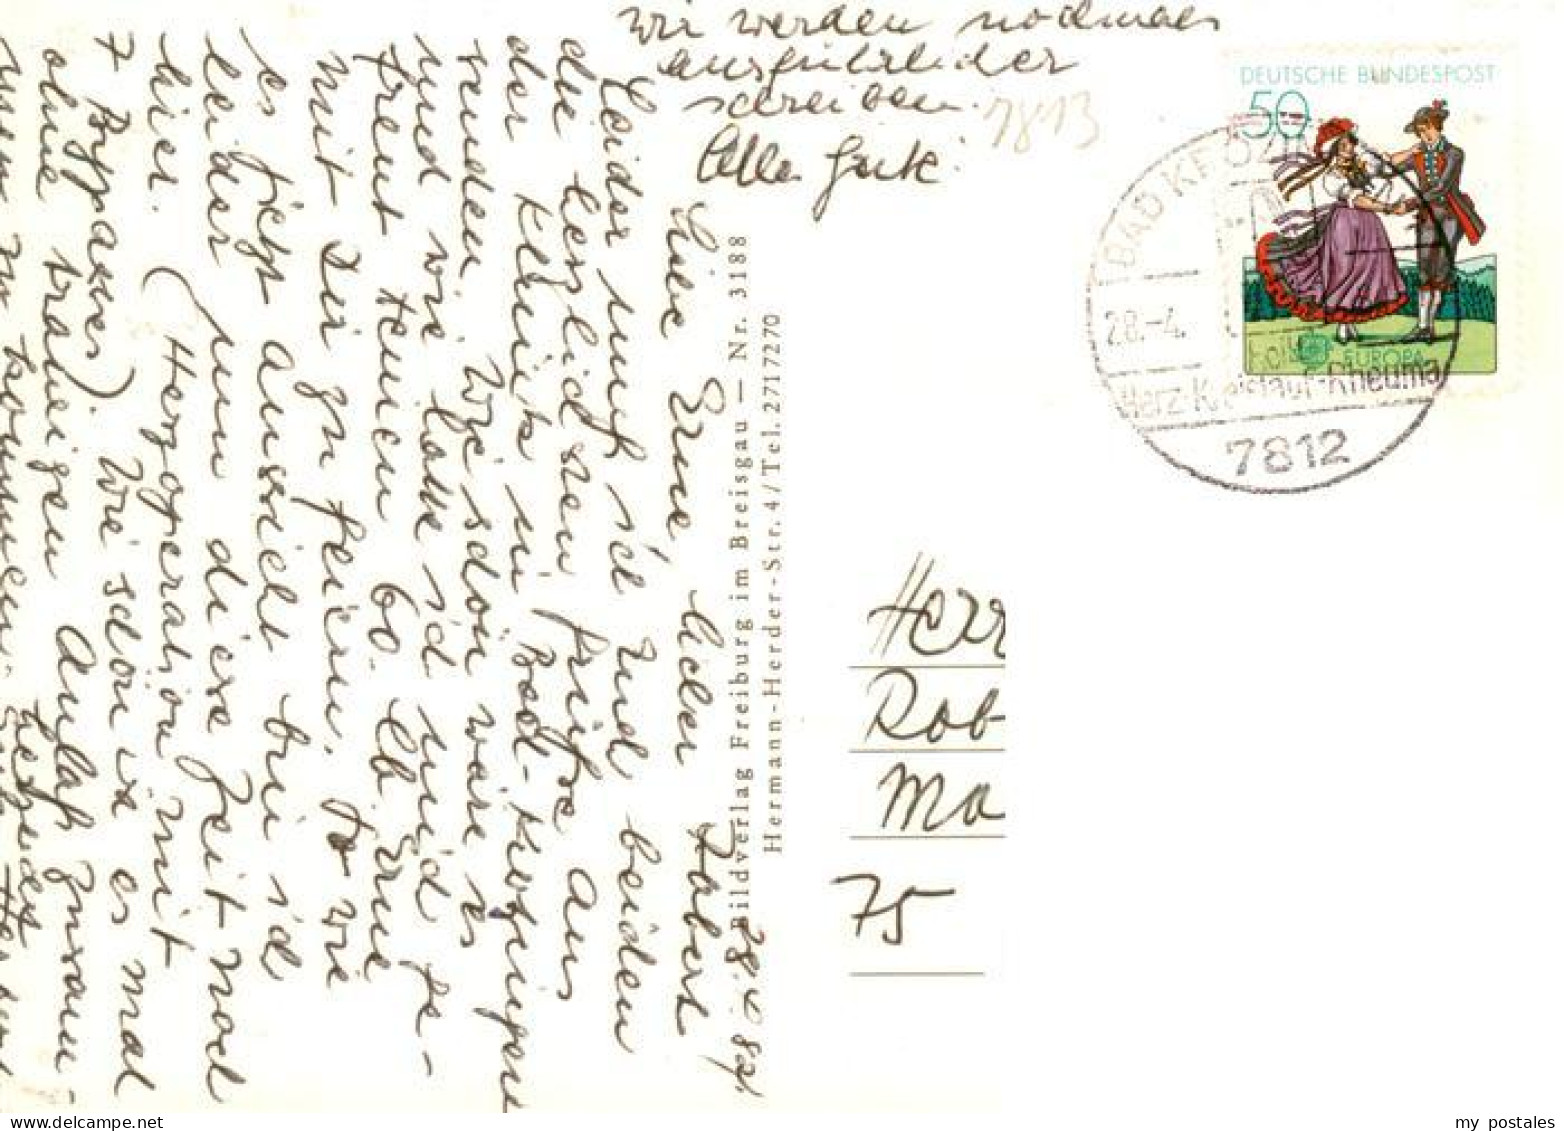 28.4.82
Liebe Erne, lieber Robert
Leider muß ich Euch beiden
die herzlichsten Grüße aus
der Klinik in Bad-Krozingen
senden. Wie schön wäre es
und wie hatte ich mich ge-
freut Deinen 60. lb Erne
mit Dir zu feiern. So wie
es jetzt aussieht bin ich
leider um diese Zeit noch
hier. (Herzoperation mit
7 Bypasses). Wie schön ist es mal
ohne traurigen Anlaß zusam-
kommen
wir werden nochmals
ausführlicher
schreiben.
Alles Gute
7813
Bildverlag Freiburg im Breisgau — Nr. 3188
Hermann-Herder-Str. 4/Tel. 27172 70
DEUTSCHE BUNDESPOST
50
EUROPA
BAD KROZIN
28.-4.
Herz-Kreislauf-Rheuma
7812
Herr
Rob
Ma
75
my postales